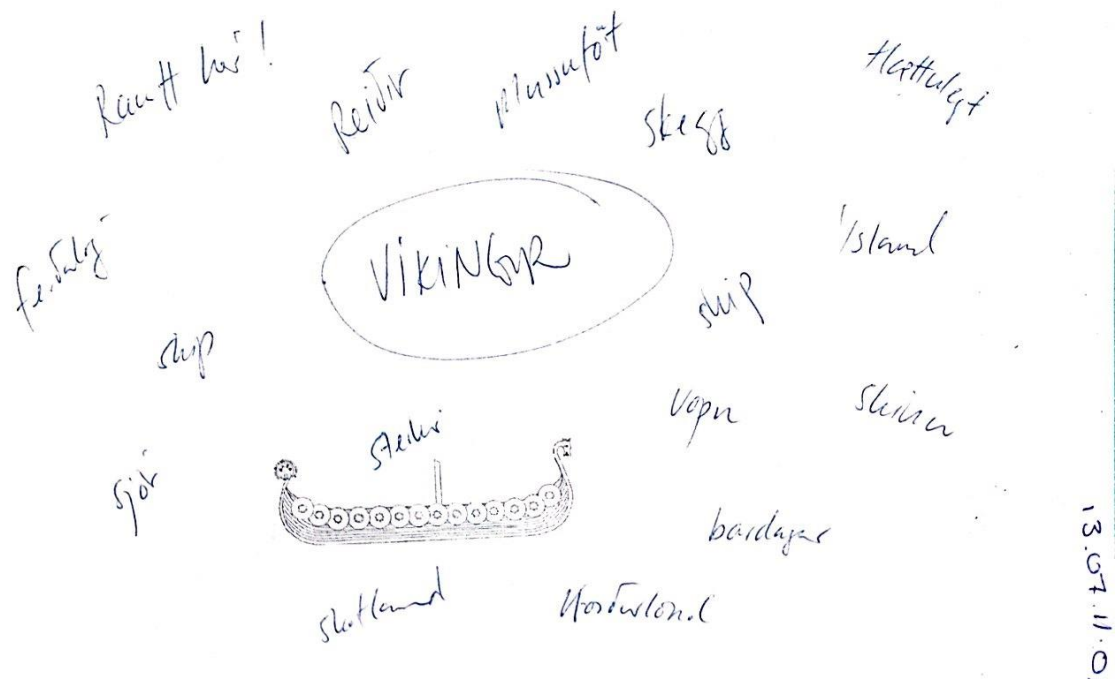 Rautt hár!
Reiðir
plussuföt
skegg
Hættulegt
ferðalög
VÍKINGUR
Ísland
skip
skip
sterkir
vopn
skinn
sjór
bardagar
skotland
Norðurlönd
13.07.11.0